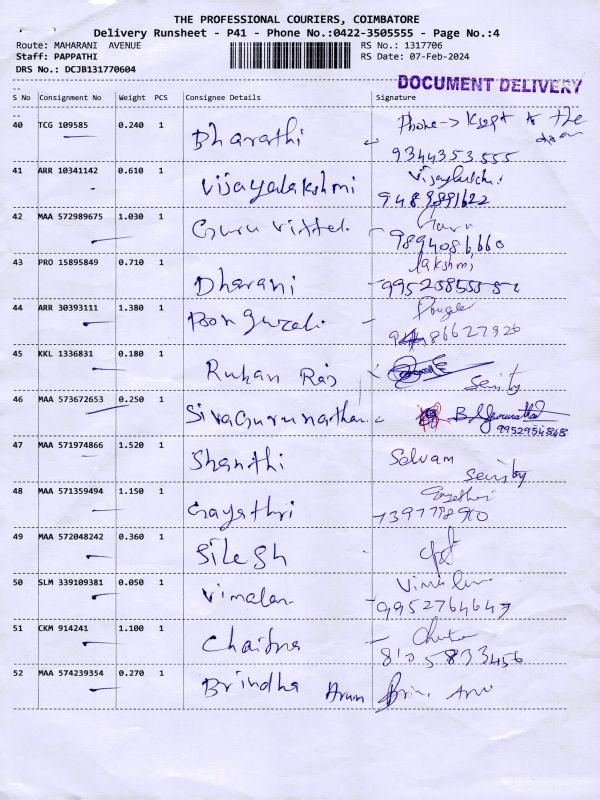 THE PROFESSIONAL COURIERS, COIMBATORE
Delivery Runsheet - P41 - Phone No.:0422-3505555 - Page No.:4
Route: MAHARANI AVENUE RS No.: 1317706
Staff: PAPPATHI RS Date: 07-Feb-2024
DRS No.: DCJB131770604
DOCUMENT DELIVERY
S No Consignment No Weight PCS Consignee Details Signature
40 TCG 109585 0.240 1 Bharathi Phone -> Kept to the door
9344353555
41 ARR 10341142 0.610 1 Vijayalakshmi
9489891622
42 MAA 572989675 1.030 1 Guru Vittel Guru
9894086660
43 PRO 15895849 0.710 1 Dharani lakshmi
44 ARR 30393111 1.380 1 Poonguzali
45 KKL 1336831 0.180 1 Ruhan Raj
46 MAA 573672653 0.250 1 Sivagurunathan
9952954848
47 MAA 571974866 1.520 1 Shanthi Selvam
48 MAA 571359494 1.150 1 Gayathri Gayathri
49 MAA 572048242 0.360 1 Silesh
50 SLM 339109381 0.050 1 Vimalan
9952764647
51 CKM 914241 1.100 1 Chaitra
8105833456
52 MAA 574239354 0.270 1 Brindha Arun